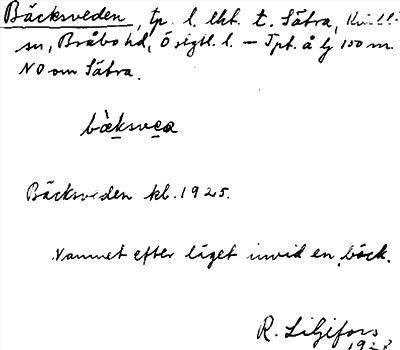 Bäcksveden, tp. l. lht. t. Sätra,
sn, Bråbo hd, Östgtl. l. – Tpt. å lj 150 m.
NO om Sätra.
bäksvea
Bäcksveden kl. 1925.
Namnet efter läget invid en bäck.
R. Liljefors